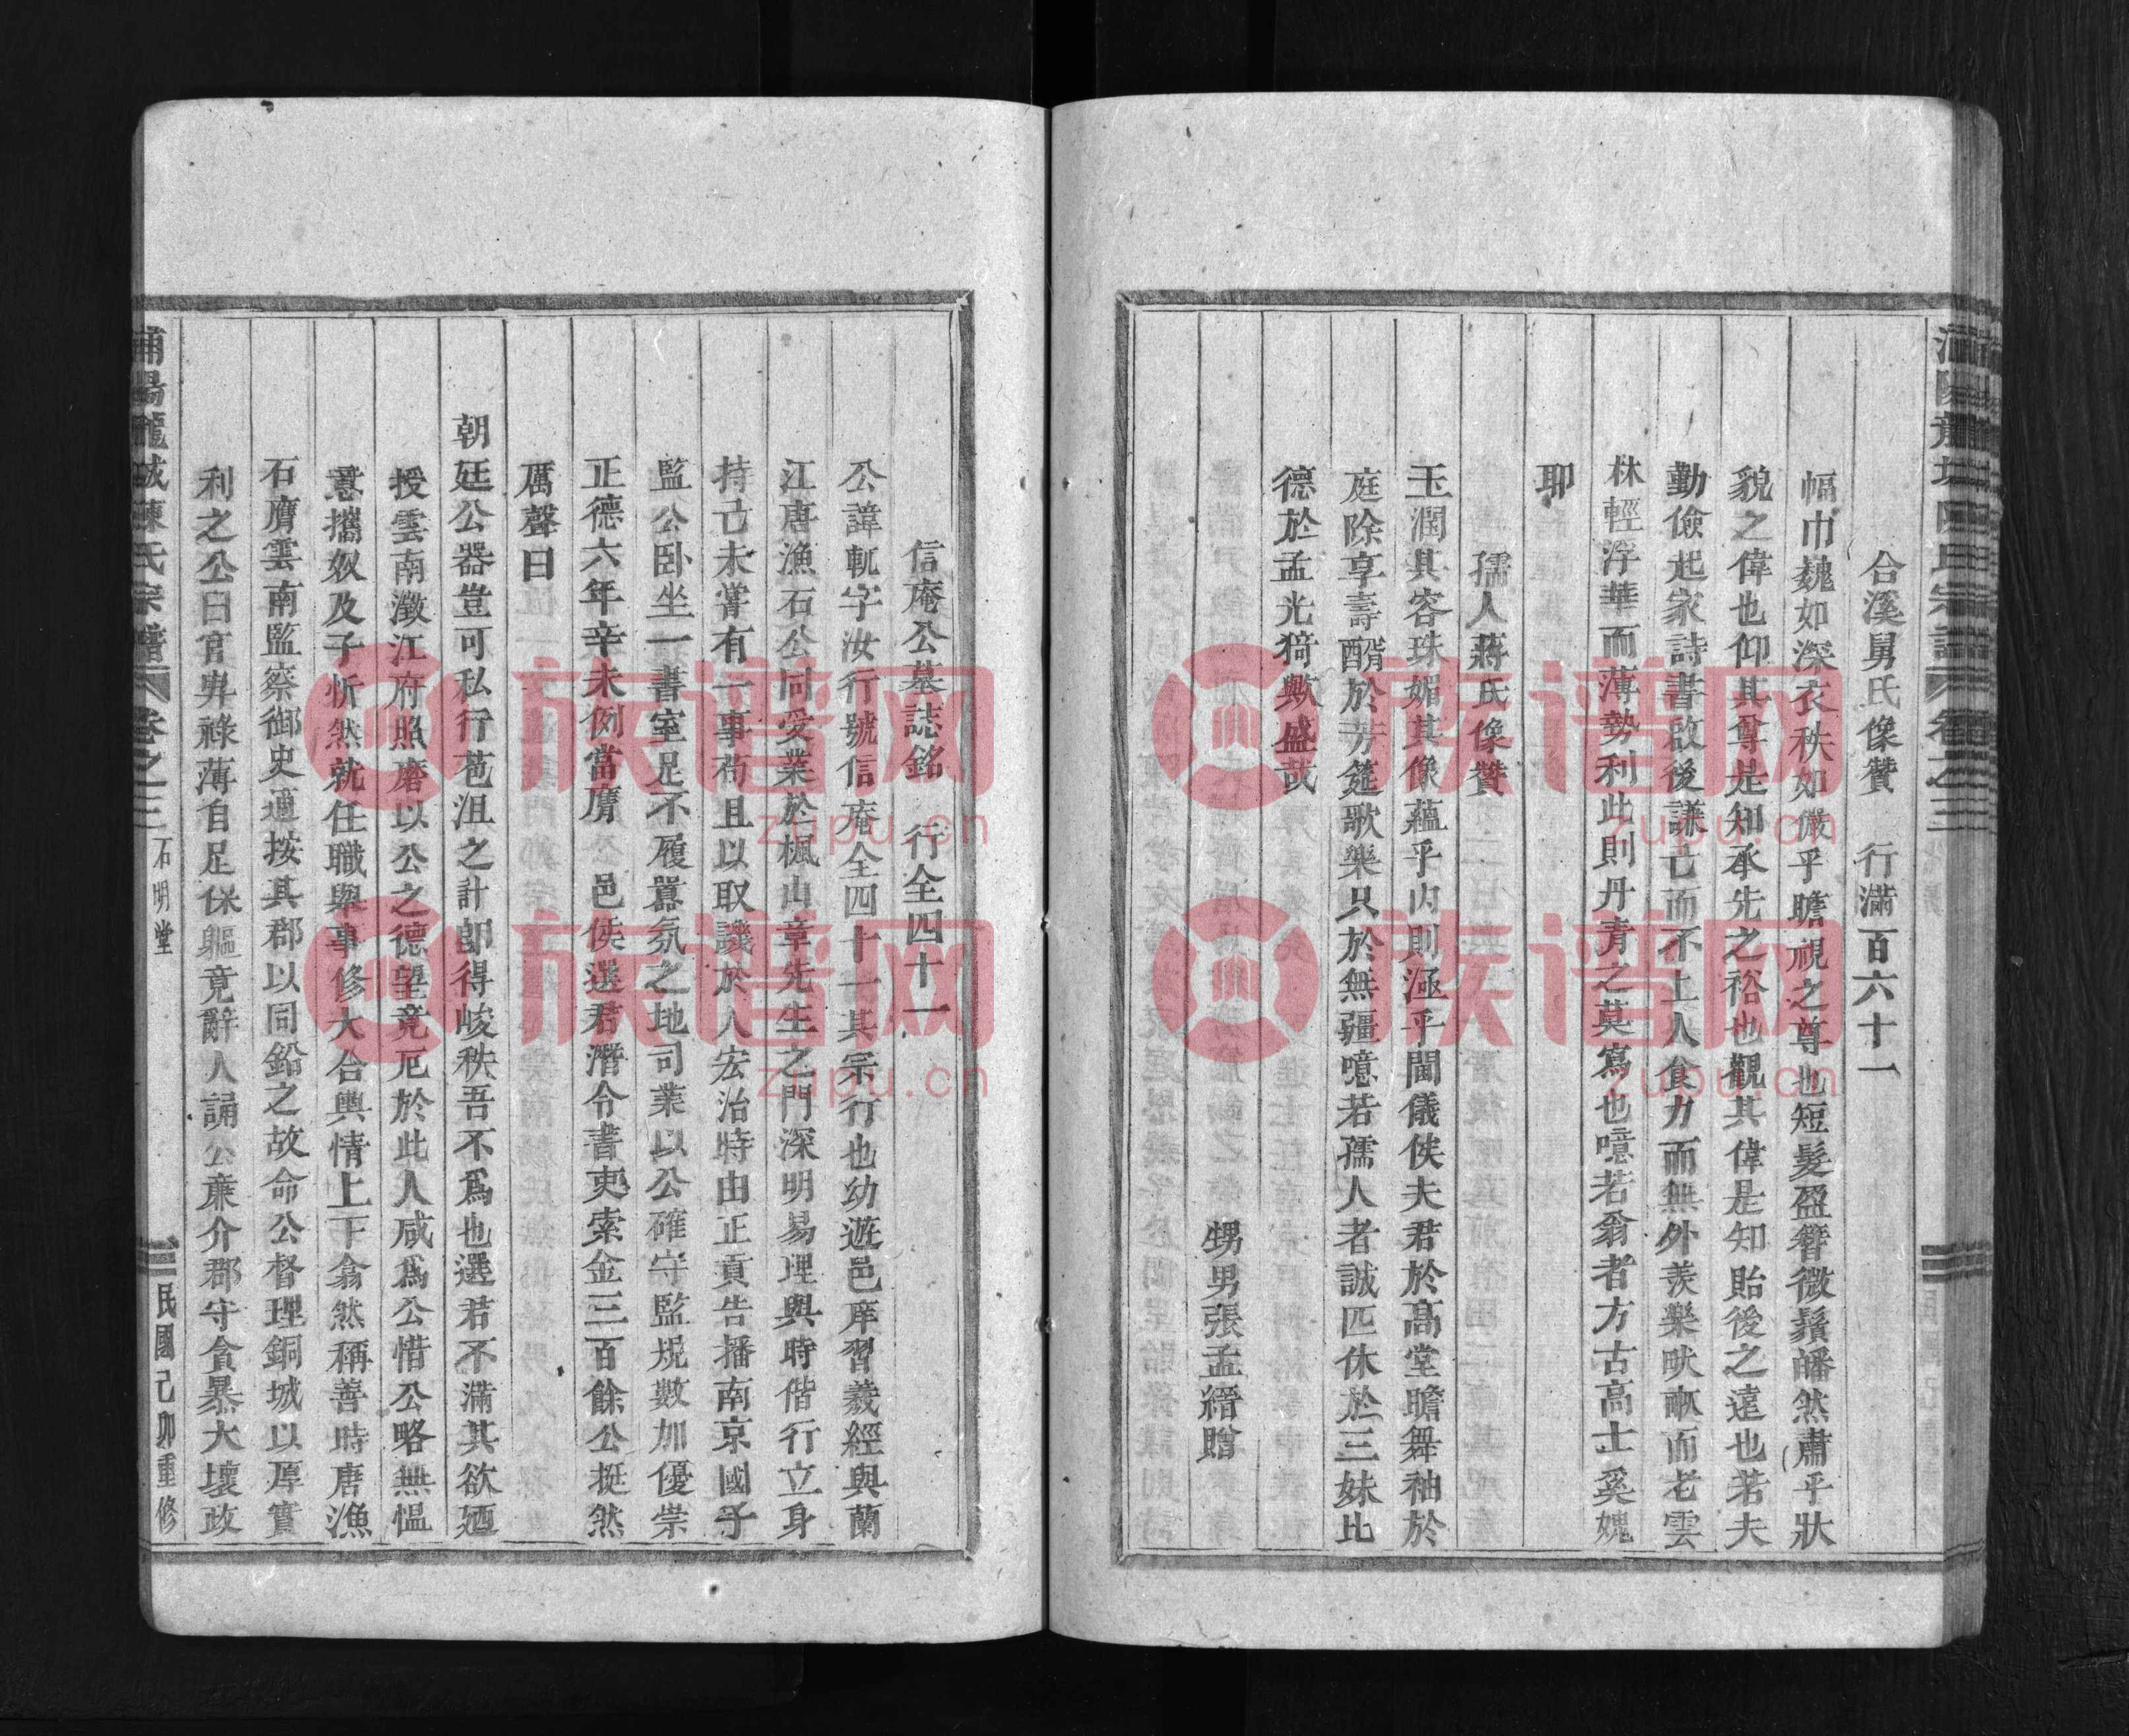 合溪舅氏像贊 行滿百六十一
幅巾巍如深衣秩如儼乎瞻視之尊也短髮盈簪微鬚皤然肅乎狀
貌之偉也仰其尊是知承先之裕也觀其偉是知貽後之遠也若夫
勤儉起家詩書啟後謙亡而不上人食力而無外羨樂畎畝而老雲
林輕浮華而薄勢利此則丹青之莫寫也噫若翁者方古高士奚媿
耶
孺人蔣氏像贊
玉潤其容珠媚其像蘊乎内則洍乎閫儀侯夫君於高堂瞻舞袖於
庭除享壽醑於芳筵歌樂只於無疆噫若孺人者誠匹休於三妹比
德於孟光猗歟盛哉
甥男張孟縉贈
信庵公墓誌銘 行全四十一
公諱軏字汝行號信庵全四十一其宗行也幼遊邑庠習羲經與蘭
江唐漁石公同受業於楓山章先生之門深明易理與時偕行立身
持己未嘗有一事苟且以取譏於人宏治時由正貢告播南京國子
監公卧坐一書室足不履囂氛之地司業以公確守監規數加優崇
正德六年辛未例當膺 邑侯選君潛令書吏索金三百餘公挺然
厲聲曰
朝廷公器豈可私行苞沮之計卽得峻秩吾不爲也選君不滿其欲廼
授雲南澂江府照磨以公之德望竟厄於此人咸爲公惜公略無慍
意攜奴及子忻然就任職與事修大合輿情上下翕然稱善時唐漁
石膺雲南監察御史適按其郡以同鉛之故命公督理銅城以厚實
利之公曰官卑祿薄自足保軀竟辭人誦公亷介郡守貪暴大壞政
浦陽龍城陳氏宗譜 卷之三 石明堂 民國己卯重修
族谱网
zupu.cn
族谱网
zupu.cn
族谱网
zupu.cn
族谱网
zupu.cn